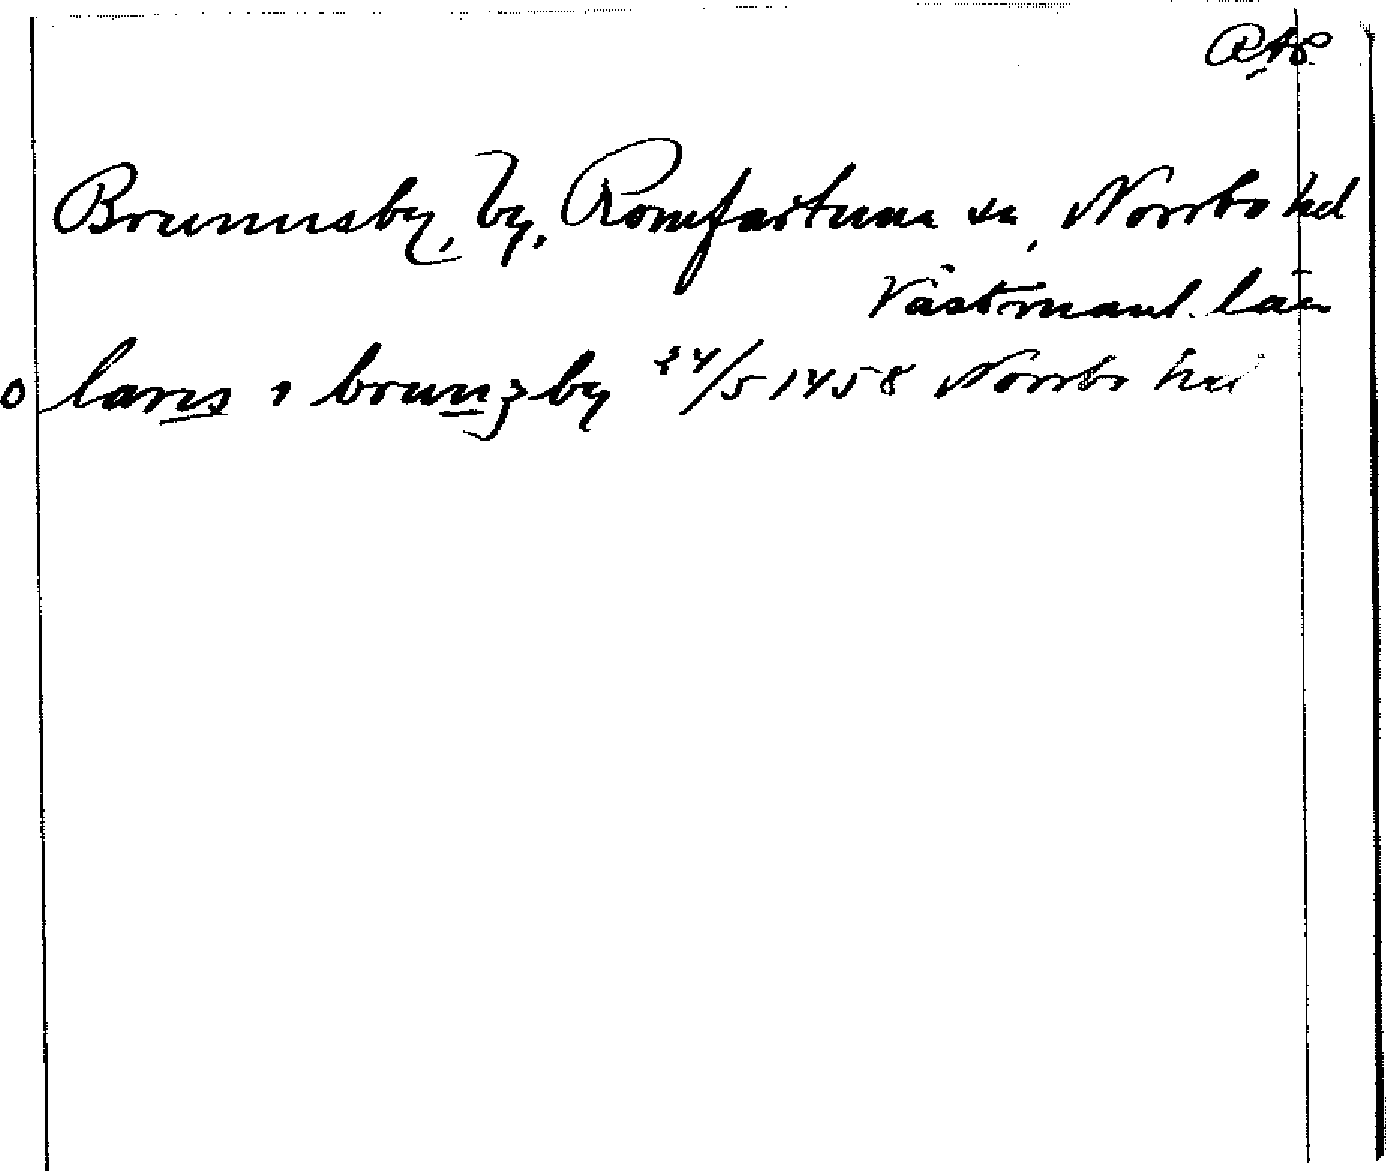 RAp
Brunnsby, by, Romfartuna sn, Norrbo hd
Västmanl. län
o laris ı brunzby 24/5 1458 Norrbo hd